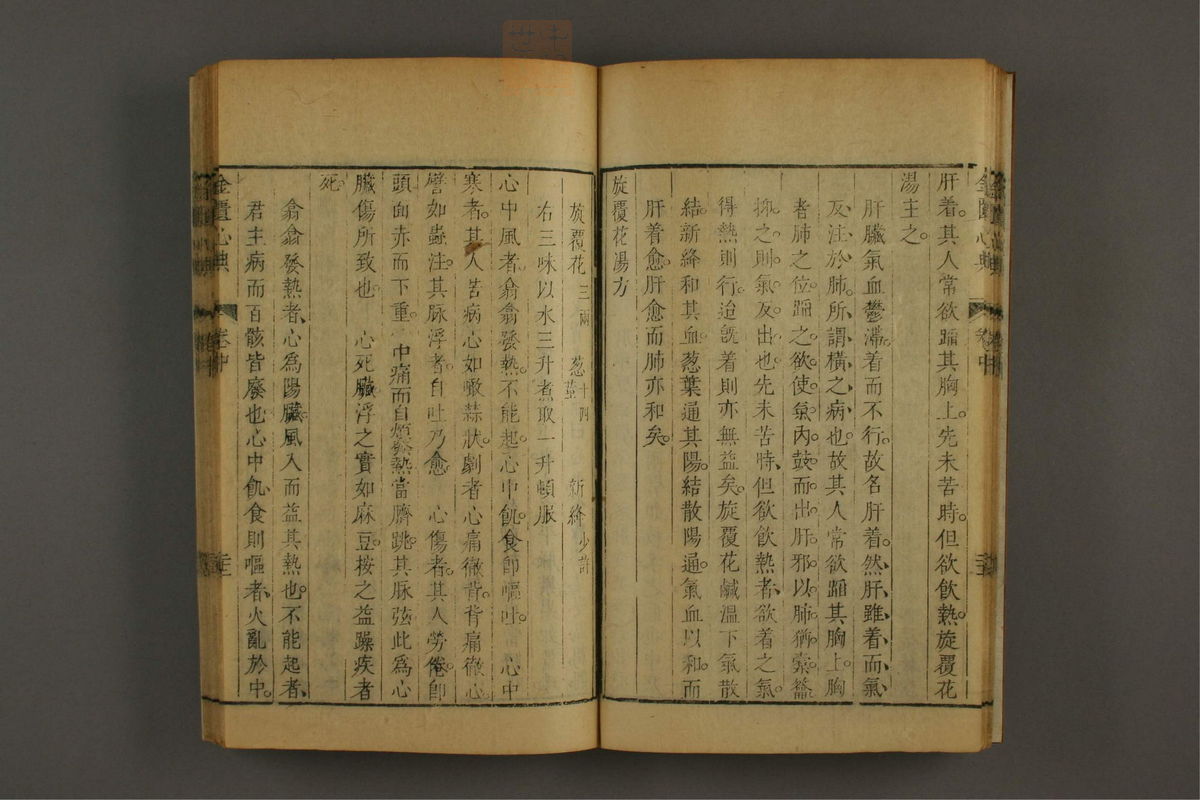 金匱心典
卷中
肝着。其人常欲蹈其胸上。先未苦時。但欲飲熱。旋覆花
湯主之。
肝臟氣血鬱滯。着而不行。故名肝着。然肝、雖着、而氣、
反、注於肺、所、謂、橫、之病、也。故其人常欲蹈其胸上。胸
者肺之位。蹈之。欲使氣內。鼓。而出。肝邪。以肺猶橐籥。
抑。之則。氣反出也。先未苦時、但欲飲熱者、欲着之氣。
得熱則行。迨既着則亦無益矣。旋覆花鹹溫下氣散
結。新絳和其血。葱葉通其陽。結散陽通。氣血以和。而
肝着愈。肝愈而肺亦和矣。
旋覆花湯方
旋覆花三兩 葱莖十四 新絳少許
右三味以水三升煮取一升頓服
心中風者。翕翕發熱。不能起。心中飢。食即嘔吐。 心中
寒者。其人苦病心如噉蒜狀。劇者心痛徹背。背痛徹心。
譬如蟲注。其脉浮者。自吐乃愈。 心傷者。其人勞倦。即
頭面赤而下重。中痛而自煩發熱。當臍跳。其脉弦。此為心
臟傷所致也。 心死臟。浮之實如麻豆。按之益躁疾者
死。
翕翕發熱者、心為陽臟。風入而益其熱也。不能起者、
君主病而百骸皆廢也。心中飢、食則嘔者、火亂於中。
金匱心典
卷中